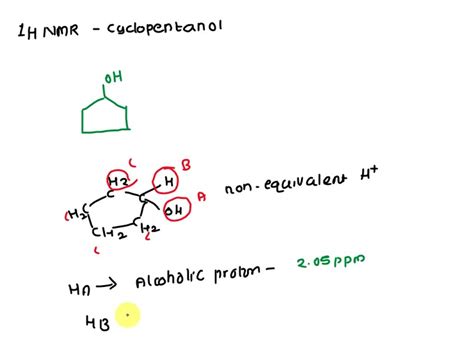 1H NMR - cyclopentanol
OH
C
B
H2
H
C
C
A
OH
non-equivalent H+
(H2
C
CH2
H2
C
C
HA → Alcoholic proton - 2.05 ppm
HB